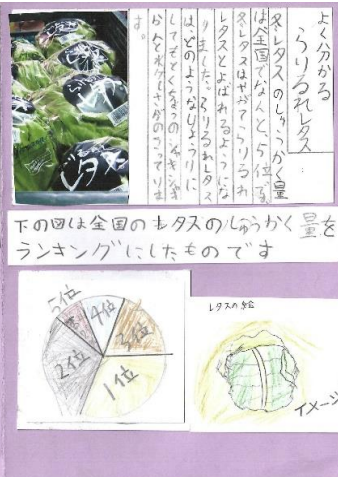 よく分かる
らりるれレタス
冬レタスのしゅうかく量
は全国でなんと、5位です。
冬レタスはやがてらりるれ
レタスとよばれるようにな
りました。らりるれレタス
は、どのようなひょうりに
してもとくちょうのシャキシャキ
かんと水々しさがのこっていま
す。
レタス
下の図は全国のレタスのしゅうかく量を
ランキングにしたものです
5位
4位
3位
2位
1位
レタスの絵
イメージ